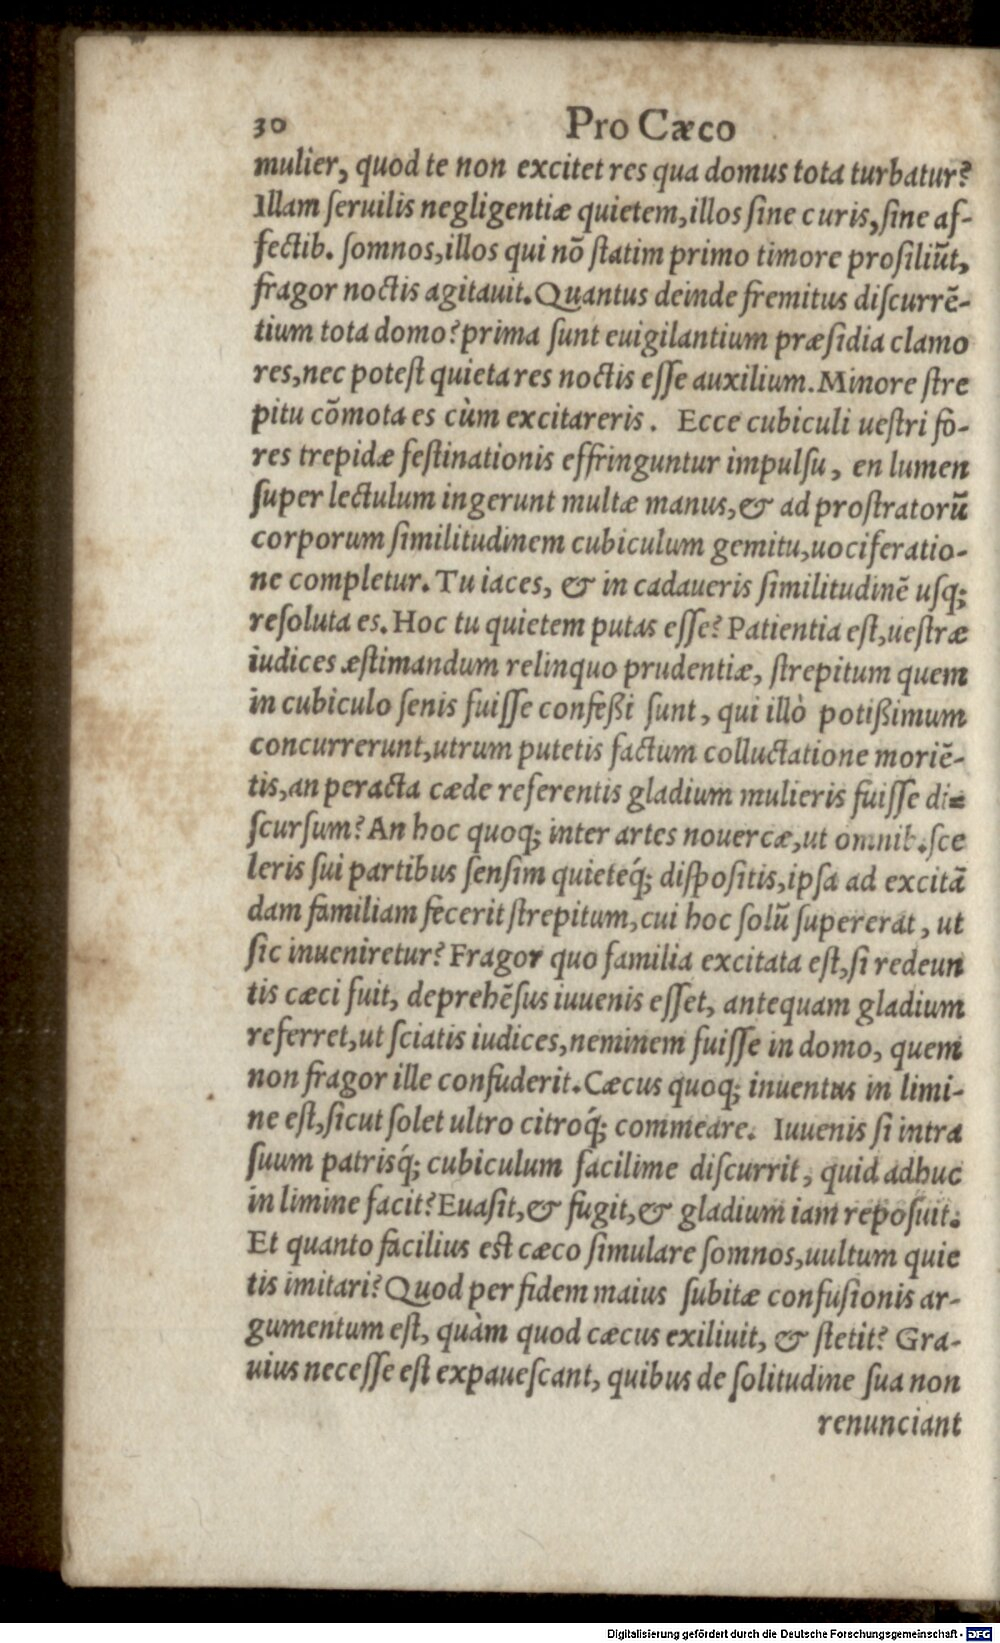 30 Pro Cæco
mulier, quod te non excitet res qua domus tota turbatur?
Illam ſeruilis negligentiæ quietem, illos ſine curis, ſine af-
fectib. ſomnos, illos qui nō ſtatim primo timore proſiliūt,
fragor noctis agitauit. Quantus deinde fremitus diſcurrē-
tium tota domo? prima ſunt euigilantium præſidia clamo
res, nec poteſt quieta res noctis eſſe auxilium. Minore ſtre
pitu cōmota es cùm excitareris. Ecce cubiculi ueſtri fo-
res trepidæ feſtinationis effringuntur impulſu, en lumen
ſuper lectulum ingerunt multæ manus, & ad proſtratorū
corporum ſimilitudinem cubiculum gemitu, uociferatio-
ne completur. Tu iaces, & in cadaueris ſimilitudinē uſq;
reſoluta es. Hoc tu quietem putas eſſe? Patientia eſt, ueſtræ
iudices æſtimandum relinquo prudentiæ, ſtrepitum quem
in cubiculo ſenis fuiſſe confeßi ſunt, qui illò potißimum
concurrerunt, utrum putetis factum colluctatione moriē-
tis, an peracta cæde referentis gladium mulieris fuiſſe di-
ſcurſum? An hoc quoq; inter artes nouercæ, ut omnib. ſce
leris ſui partibus ſenſim quieteq́; diſpoſitis, ipſa ad excitā
dam familiam fecerit ſtrepitum, cui hoc ſolū ſupererat, ut
ſic inueniretur? Fragor quo familia excitata eſt, ſi redeun
tis cæci fuit, deprehēſus iuuenis eſſet, antequam gladium
referret, ut ſciatis iudices, neminem fuiſſe in domo, quem
non fragor ille confuderit. Cæcus quoq; inuentus in limi-
ne eſt, ſicut ſolet ultro citroq́; commeare. Iuuenis ſi intra
ſuum patriſq́; cubiculum facilime diſcurrit, quid adhuc
in limine facit? Euaſit, & fugit, & gladium iam repoſuit.
Et quanto facilius est cæco ſimulare ſomnos, uultum quie
tis imitari? Quod per fidem maius ſubitæ confuſionis ar-
gumentum eſt, quàm quod cæcus exiliuit, & ſtetit? Gra-
uius neceſſe eſt expaueſcant, quibus de ſolitudine ſua non
renunciant
Digitalisierung gefördert durch die Deutsche Forschungsgemeinschaft - DFG